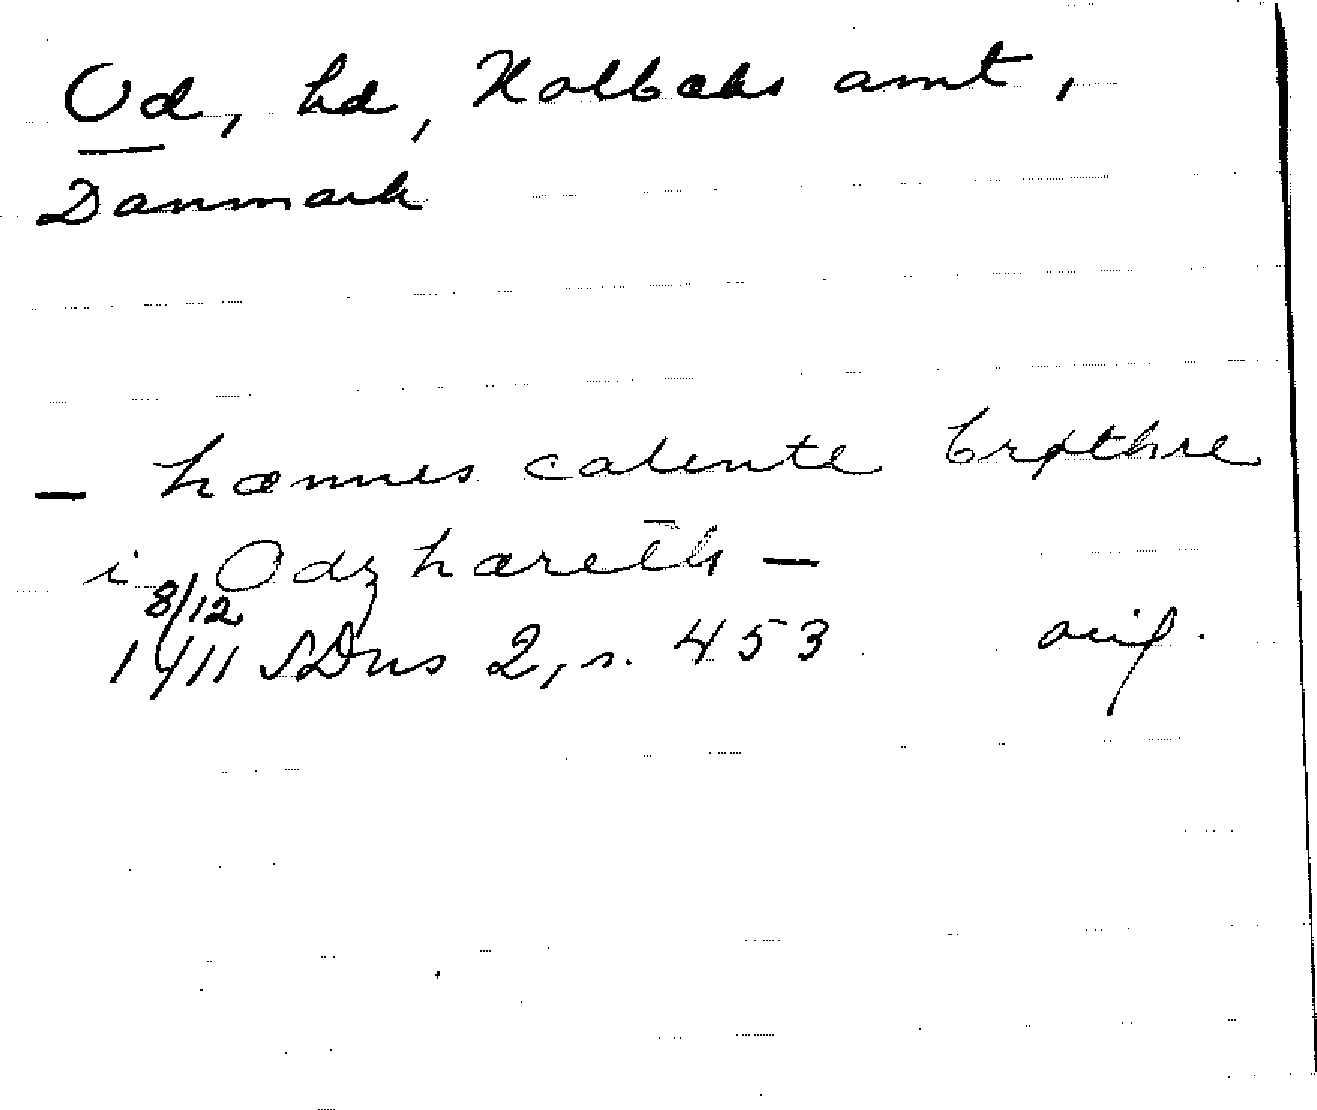 Od, hd, Holbæks amt,
Danmark
— hænnes catente brøthre
i Odzhæreth —
8/12
1411 SDns 2, s. 453 orig.